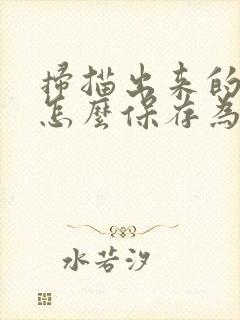 掃描出来的
怎麼保存為
水若汐